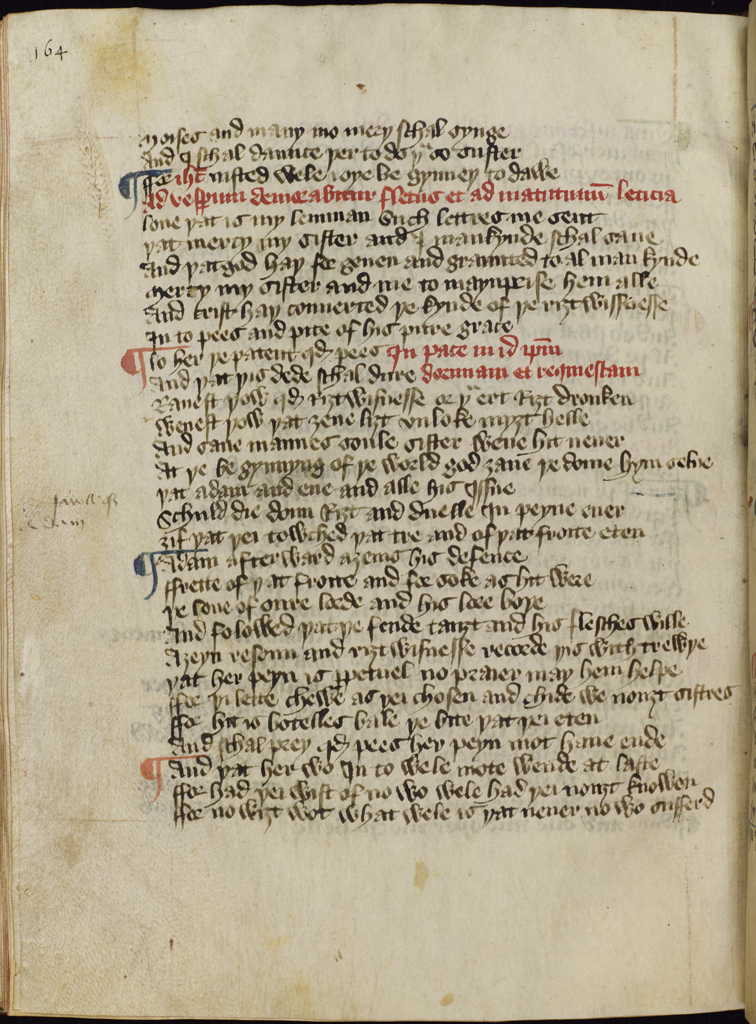 164
Moises and many mo mery schal synge
And I schal daunce þer to do þu so suster
For ihc iusted wele ioye be gynneþ to dawe
Ad vesperum demorabitur fletus et ad matutinum leticia
loue þat is my lemman Such lettres me sent
þat mercy my sister and I mankynde schal saue
And þat god haþ for geuen and graunted to al man kynde
Mercy my sister and me to maynprise hem alle
And crist haþ conuerted þe kynde of þe riȝtwisnesse
In to pees and pite of his pure grace
lo her þe patent qd pees In pace in id ipm
And þat þis dede schal dure dormiam et requiescam
Rauest þow qd riȝtwisnesse or þu ert Riȝt dronken
Wenest þow þat ȝene liȝt vnloke myȝt helle
And saue mannes soule sister wene hit neuer
At þe be gynnyng of þe world god ȝaue þe dome hym selue
þat adam and eue and alle his Issue
Schuld die doun Riȝt and duelle In peyne euer
ȝif þat þei towched þat tre and of þat froite eten
Adam afterward aȝeins his defence
ffrette of þat froite and for soke as hit were
þe loue of oure lorde and his lore boþe
And folowed þat þe fende tauȝt and his flesches wille
Aȝeyn resoun and riȝtwisnesse recorde þis with trewþe
þat her peyn is perpetuel no praier may hem helpe
ffor þi lette chewe as þei chosen and chide we nouȝt sistres
ffor hit is botelles bale þe bite þat þei eten
And I schal prey qd pees her peyn mot haue ende
And þat her wo In to wele mote wende at laste
ffor had þei wist of no wo wele had þei nouȝt knowen
ffor no wiȝt wot what wele is þat neuer no wo sufferd